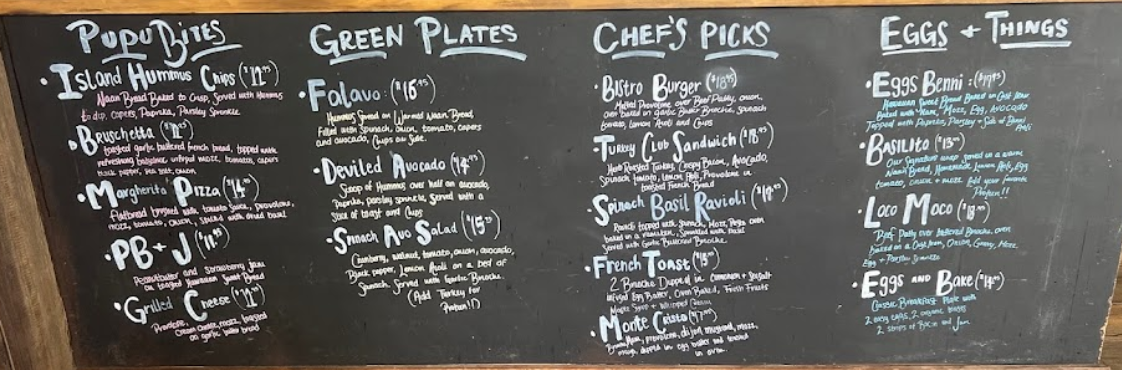 PUPU BITES
• Island Hummus Chips
Naan Bread Baked to Crisp, Served with Hummus
to dip, capers, Paprika, Parsley Sprinkle
Bruschetta
toasted garlic buttered french bread, topped with
refreshing balsamic, mozz, tomato, capers
black pepper, sea salt, onion
• Margherita Pizza
Flatbread brushed with tomato sauce, Provolone,
mozz, tomato, onion, with dried basil
• PB + J
Peanutbutter and Strawberry Jam
on toasted Hawaiian Sweet Bread
• Grilled Cheese
Provolone, mozz, toasted
on garlic butter bread
GREEN PLATES
• Falavo: ($16.95)
Hummus Spread on Warmed Naan Bread,
filled with spinach, onion, tomato, capers
and avocado, Chips on Side.
• Deviled Avocado
Scoop of Hummus over half an avocado,
Paprika, parsley sprinkle, Served with a
Slice of toast and Chips
• Spinach Avo Salad
Cranberry, walnut, tomato, onion, avocado,
Black pepper, Lemon Aioli on a bed of
Spinach. Served with Garlic Brioche.
(Add Turkey for
Protein!!)
CHEF'S PICKS
• Bistro Burger ($18.95)
Melted Provolone over Beef Patty, onion,
oven baked in garlic Butter Brioche, spinach
tomato, Lemon Aioli and Chips
Turkey Club Sandwich
Herb Roasted Turkey, Crispy Bacon, Avocado,
Spinach tomato, Lemon Aioli, Provolone in
toasted French Bread
• Spinach Basil Ravioli
Ravioli topped with Spinach, Mozz, Pesto oven
baked in a ramekin, Sprinkled with basil
Served with Garlic Buttered Brioche
• French Toast
2 Brioche Dipped in Cinnamon + Sea Salt
infused Egg Batter, Oven Baked, Fresh Fruits
Maple Syrup + Whipped Cream
• Monte Cristo
Ham, provolone, dijon mustard, mozz,
dipped in egg batter and toasted
in oven.
EGGS + THINGS
• Eggs Benni:
Hawaiian Sweet Bread Based in Cast Iron
Baked with Ham, Mozz, Egg, Avocado
Topped with Paprika, Parsley + Side of
Aioli
• Basilito
Our Signature wrap served on a warm
Naan Bread, Homemade Lemon Aioli, Egg
tomato, onion + mozz Add your favorite
Protein!!
• Loco Moco
Beef Patty over Buttered Brioche, oven
Based on a Cast Iron, Onion, Gravy, Mozz,
Egg + Parsley Sprinkle
• Eggs and Bake
Classic Breakfast Plate with
2 easy eggs, 2 organic
2 strips of Bacon and Jam